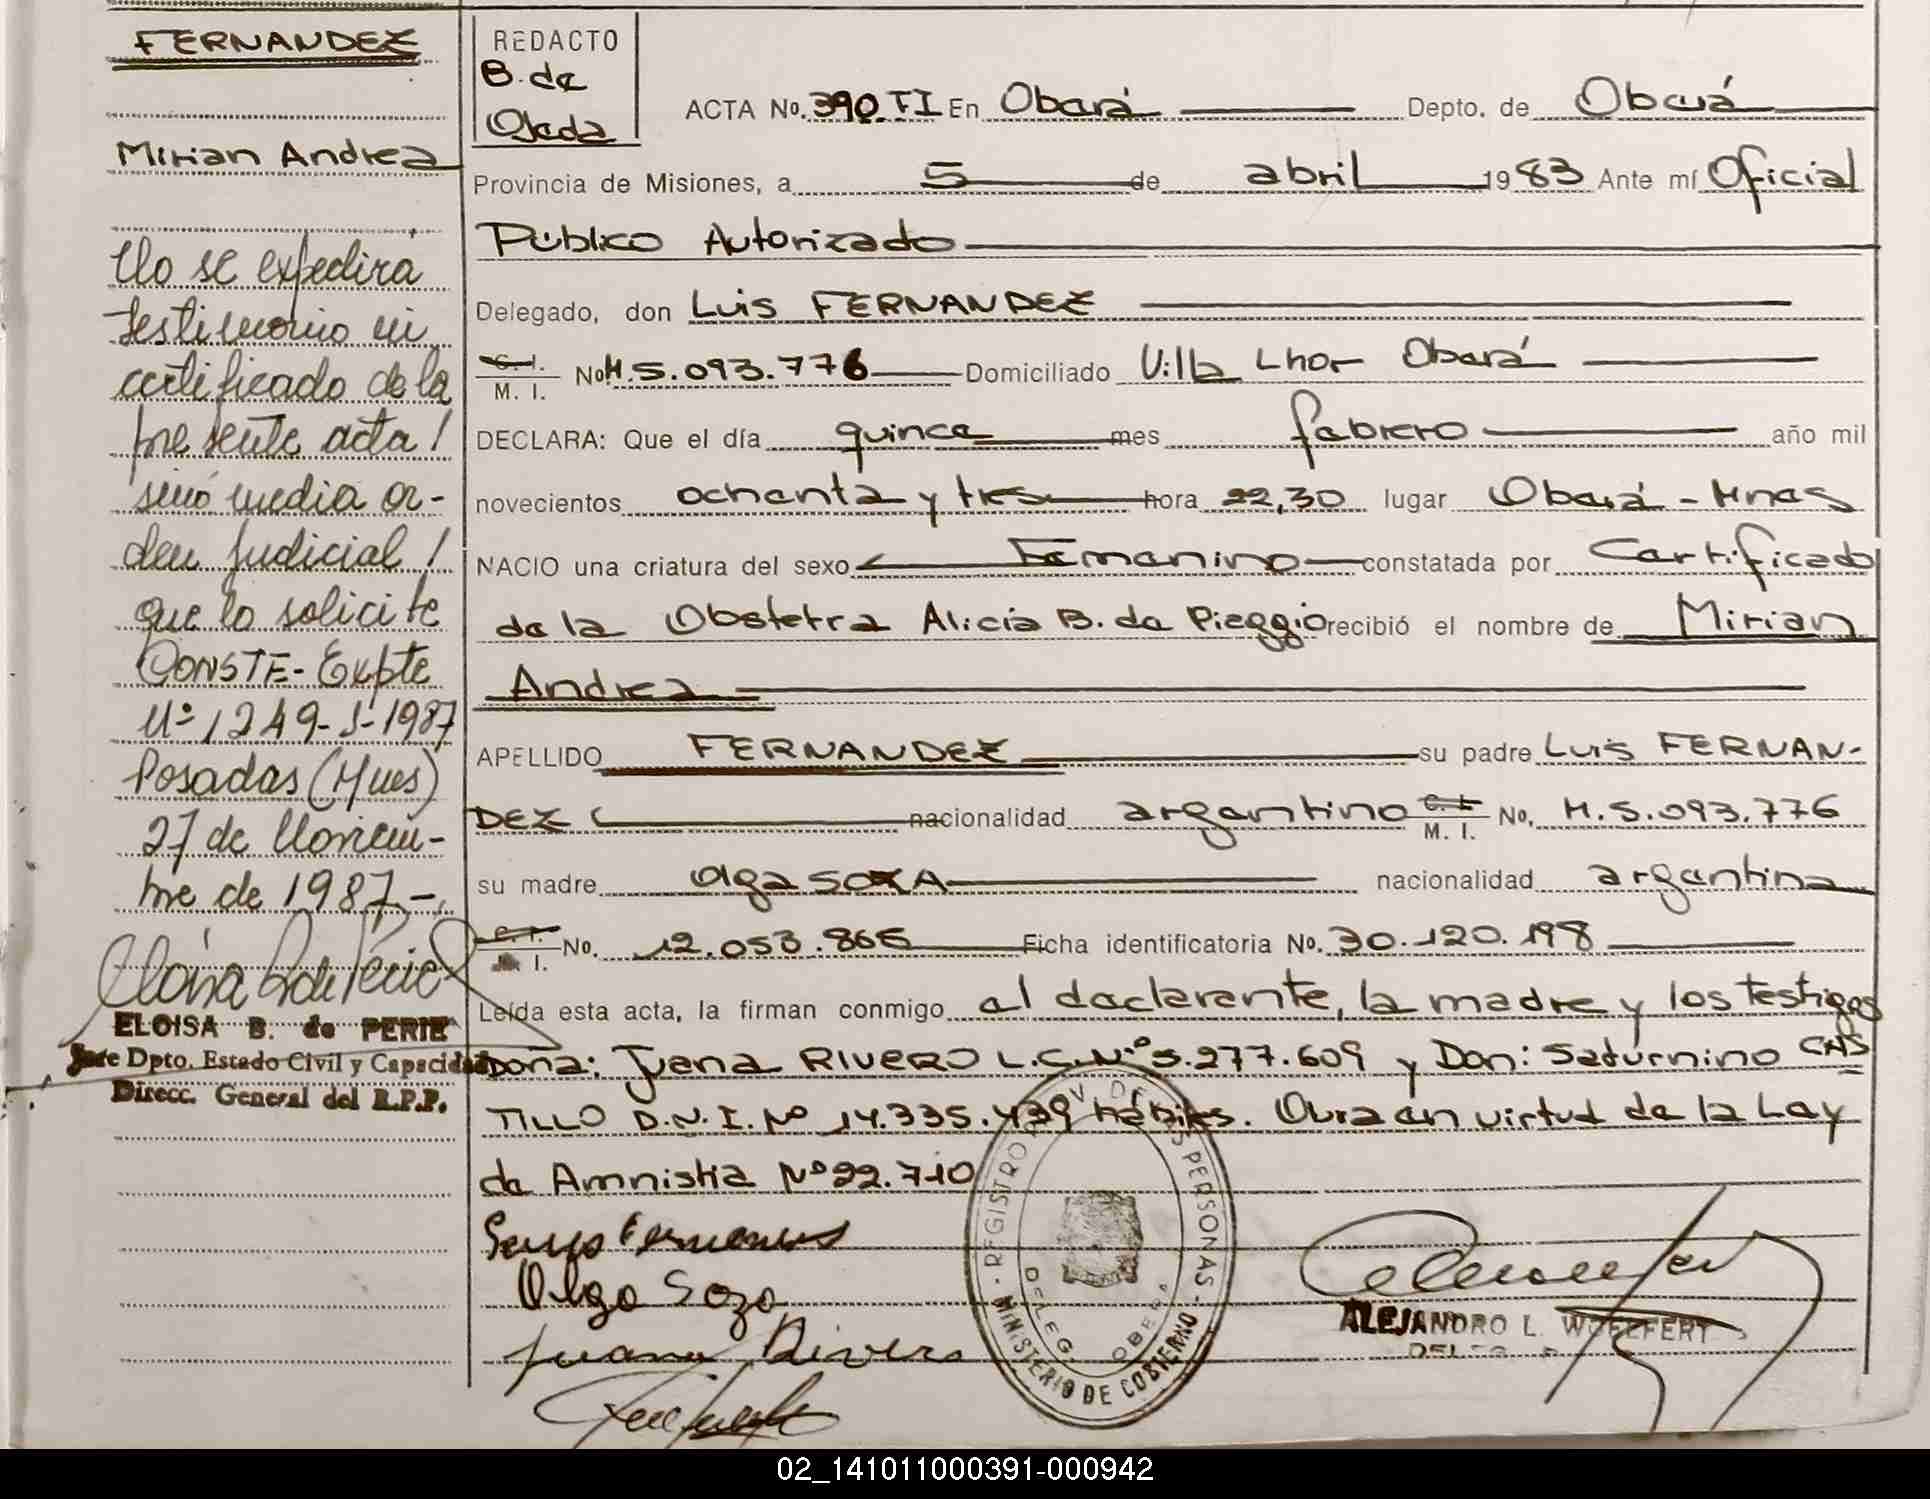 FERNANDEZ
Mirian Andrea
No se expedirá
testimonio ni
certificado de la
presente acta!
sinó media or-
den judicial!
que lo solicite
CONSTE- Expte
Nº 1249-S-1987
Posadas (Mnes)
27 de Noviem-
bre de 1987-
ELOISA B. de PERIE
Jefe Dpto. Estado Civil y Capacidad
Direcc. General del R.P.P.
REDACTO
B. de
Ojeda
ACTA No. 390 TI En Oberá Depto. de Oberá
Provincia de Misiones, a 5 de abril 1983 Ante mí Oficial
Público Autorizado
Delegado, don Luis FERNANDEZ
C. I.
M. I. No M.5.093.776 Domiciliado Villa Lhor Oberá
DECLARA: Que el día quince mes febrero año mil
novecientos ochenta y tres hora 22,30 lugar Oberá - Mnes
NACIO una criatura del sexo Femenino constatada por Certificado
de la Obstetra Alicia B. de Pieggio recibió el nombre de Mirian
Andrea
APELLIDO FERNANDEZ su padre Luis FERNAN-
DEZ nacionalidad argentino C. I.
M. I. No. M.5.093.776
su madre Olga SOZA nacionalidad argentina
C. I.
M. I. No. 12.053.865 Ficha identificatoria No. 30.120.198
Leída esta acta, la firman conmigo el declarante, la madre y los testigos
Doña: Juana RIVERO L.C.Nº 5.277.609 y Don: Saturnino CAS
TILLO D.N.I. Nº 14.335.439 hábiles. Obra en virtud de la Ley
de Amnistia Nº 22.710
Olga Soza
Juana Rivero
REGISTRO PROV. DE LAS PERSONAS - MINISTERIO DE GOBIERNO -
DELEG. OBERA
ALEJANDRO L. WOELFERT
02_141011000391-000942